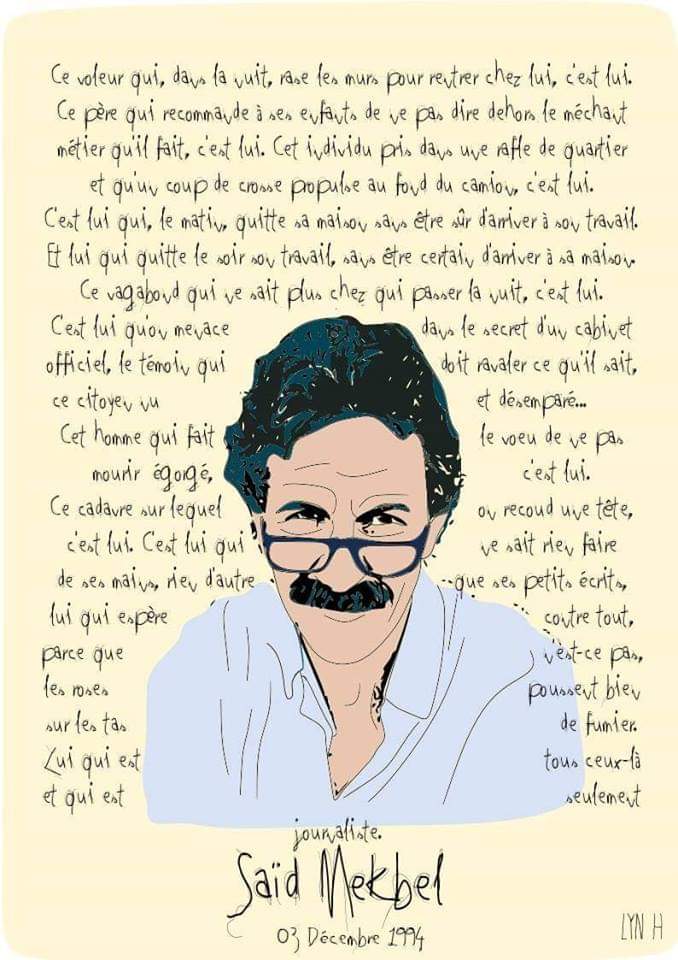 Ce voleur qui, dans la nuit, rase les murs pour rentrer chez lui, c'est lui.
Ce père qui recommande à ses enfants de ne pas dire dehors le méchant
métier qu'il fait, c'est lui. Cet individu pris dans une rafle de quartier
et qu'un coup de crosse propulse au fond du camion, c'est lui.
C'est lui qui, le matin, quitte sa maison sans être sûr d'arriver à son travail.
Et lui qui quitte le soir son travail, sans être certain d'arriver à sa maison.
Ce vagabond qui ne sait plus chez qui passer la nuit, c'est lui.
C'est lui qu'on menace dans le secret d'un cabinet
officiel, le témoin qui doit ravaler ce qu'il sait,
ce citoyen nu et désemparé...
Cet homme qui fait le voeu de ne pas
mourir égorgé, c'est lui.
Ce cadavre sur lequel on recoud une tête,
c'est lui. C'est lui qui ne sait rien faire
de ses mains, rien d'autre que ses petits écrits,
lui qui espère contre tout,
parce que n'est-ce pas,
les roses poussent bien
sur les tas de fumier.
Lui qui est tous ceux-là
et qui est seulement
journaliste.
Saïd Mekbel
03 Décembre 1994
LYN H